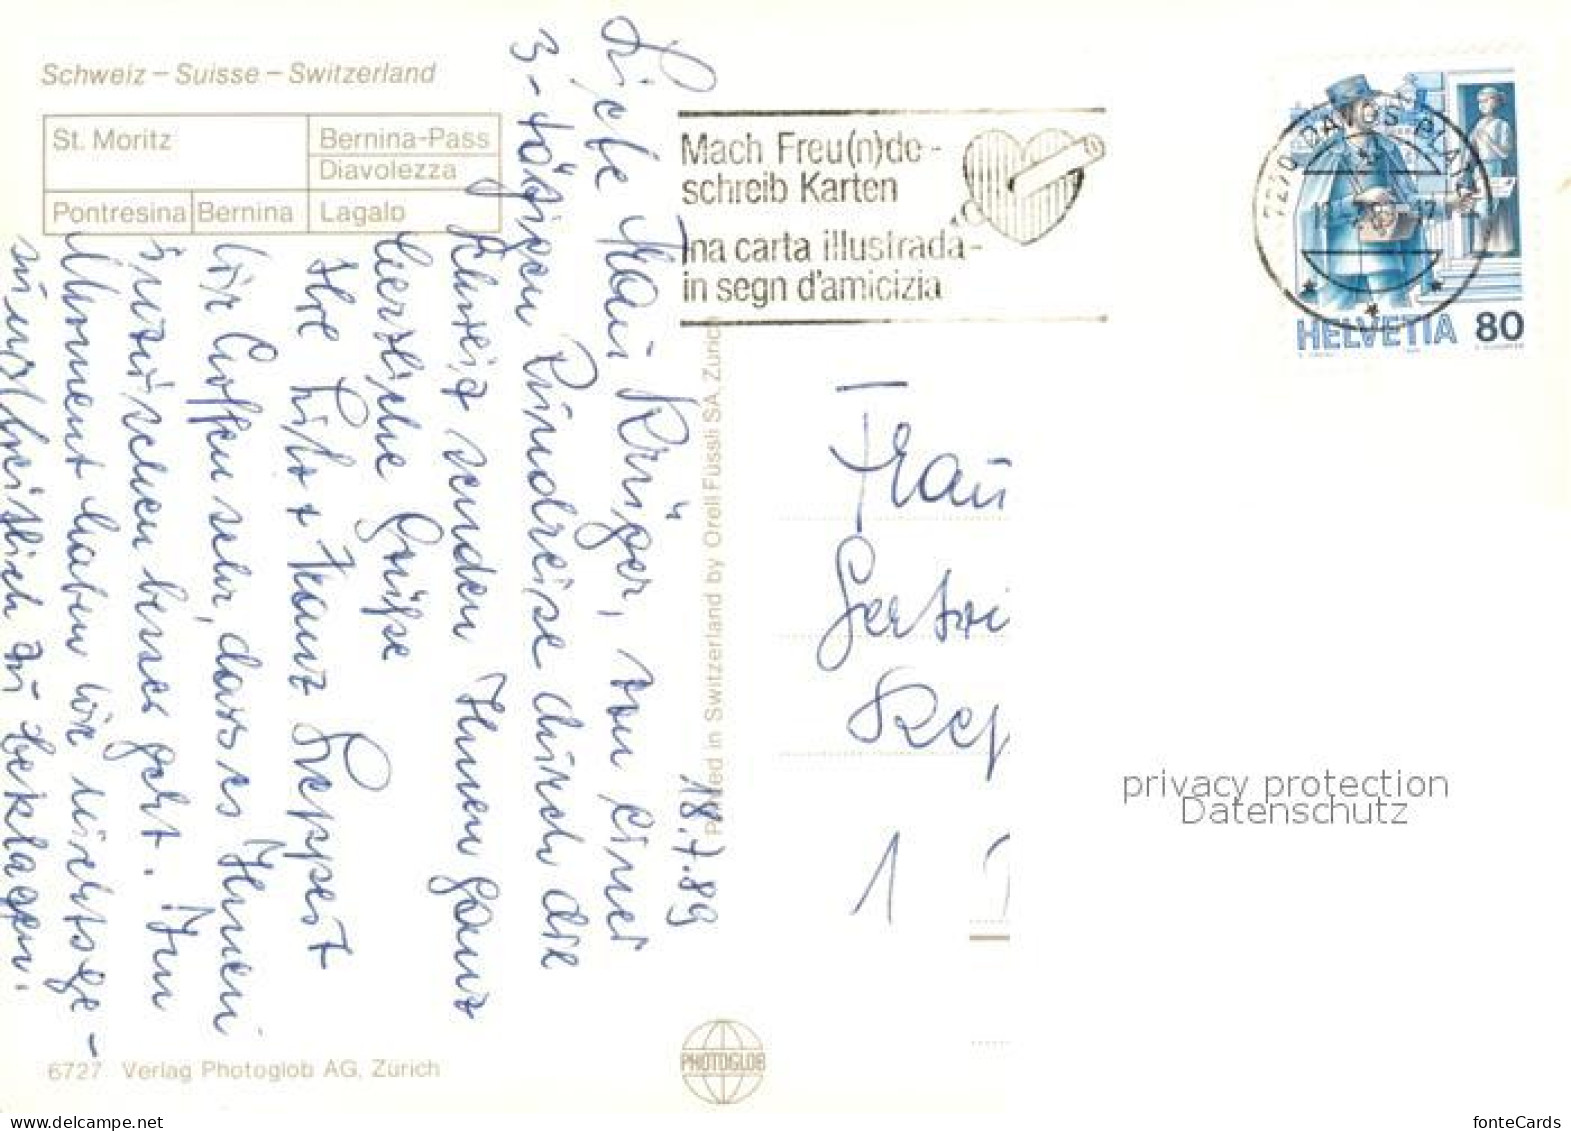 Schweiz – Suisse – Switzerland
St. Moritz
Bernina-Pass
Diavolezza
Pontresina
Bernina
Lagalb
Mach Freu(n)de -
schreib Karten
Ina carta illustrada -
in segn d'amicizia
7270 DAVOS PLATZ
HELVETIA 80
18.7.89
Liebe Frau Krüger, von einer
3-tägigen Rundreise durch die
Schweiz senden Ihnen ganz
herzliche Grüße
Ihre + Franz Seppest
Wir hoffen sehr, dass es Ihnen
inzwischen besser geht. Im
Moment haben wir uns
zu beklagen.
Frau
1
Printed in Switzerland by Orell Füssli SA, Zürich
PHOTOGLOB
6727 Verlag Photoglob AG, Zürich
privacy protection
Datenschutz
www.delcampe.net
fonteCards